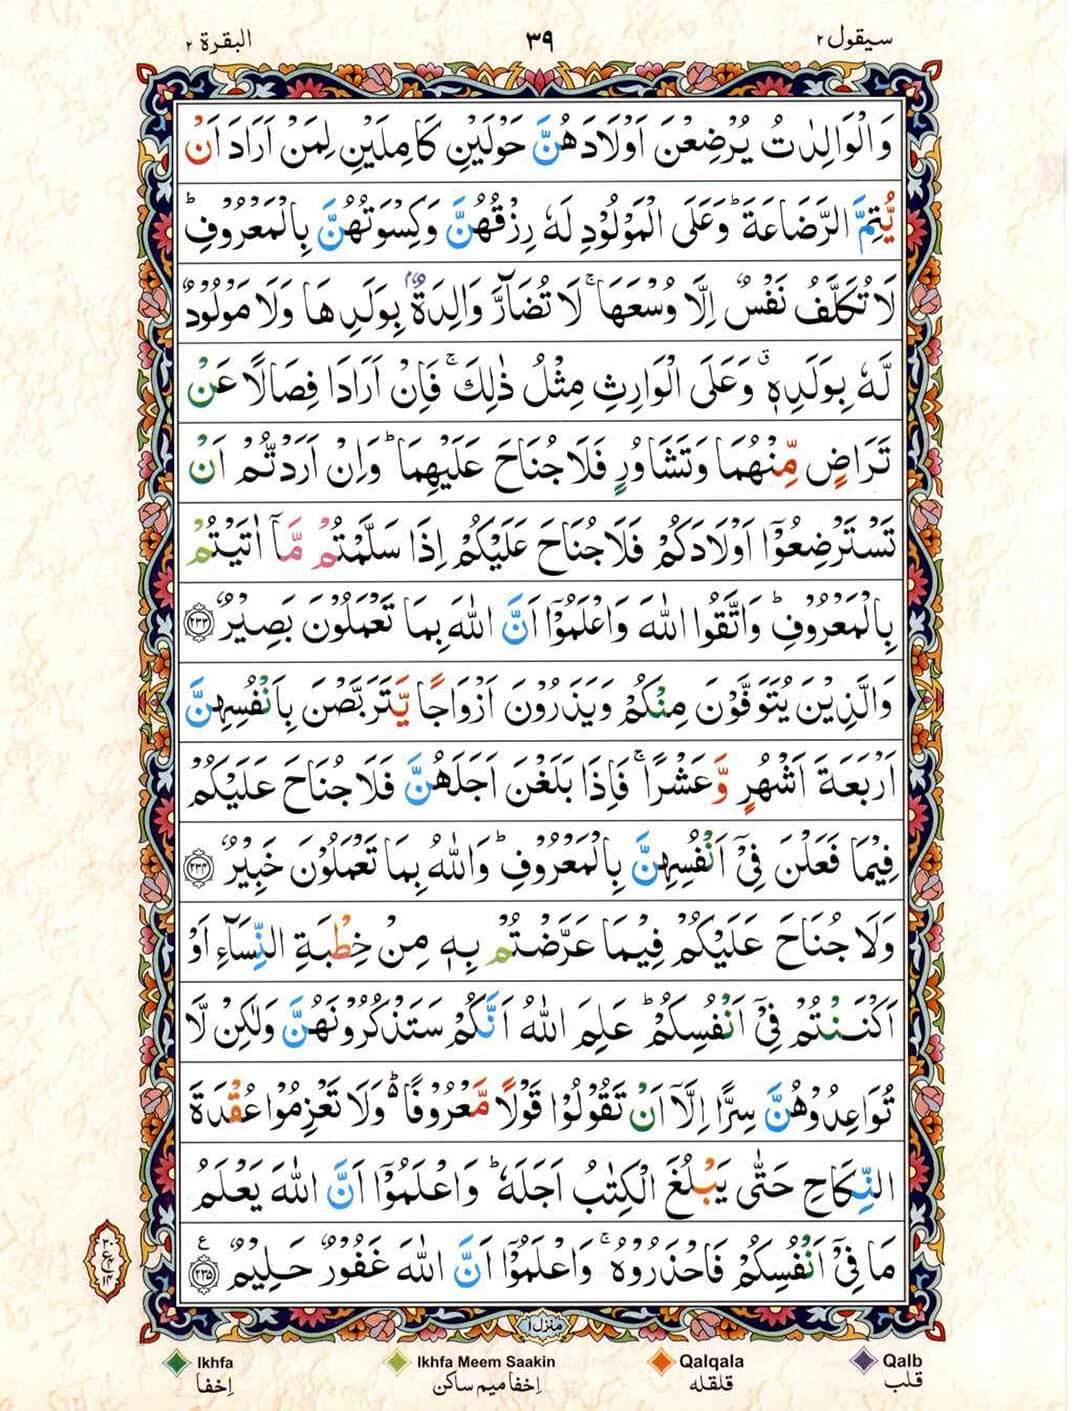 سیقول ۲
۳۹
البقرۃ ۲
وَالْوَالِدٰتُ یُرْضِعْنَ اَوْلَادَهُنَّ حَوْلَیْنِ كَامِلَیْنِ لِمَنْ اَرَادَ اَنْ
یُّتِمَّ الرَّضَاعَةَ ؕ وَعَلَی الْمَوْلُوْدِ لَهٗ رِزْقُهُنَّ وَكِسْوَتُهُنَّ بِالْمَعْرُوْفِ ؕ
لَا تُكَلَّفُ نَفْسٌ اِلَّا وُسْعَهَا ۚ لَا تُضَآرَّ وَالِدَةٌۢ بِوَلَدِهَا وَلَا مَوْلُوْدٌ
لَّهٗ بِوَلَدِهٖ ۗ وَعَلَی الْوَارِثِ مِثْلُ ذٰلِكَ ۚ فَاِنْ اَرَادَا فِصَالًا عَنْ
تَرَاضٍ مِّنْهُمَا وَتَشَاوُرٍ فَلَا جُنَاحَ عَلَیْهِمَا ؕ وَاِنْ اَرَدْتُّمْ اَنْ
تَسْتَرْضِعُوْۤا اَوْلَادَكُمْ فَلَا جُنَاحَ عَلَیْكُمْ اِذَا سَلَّمْتُمْ مَّاۤ اٰتَیْتُمْ
بِالْمَعْرُوْفِ ؕ وَاتَّقُوا اللّٰهَ وَاعْلَمُوْۤا اَنَّ اللّٰهَ بِمَا تَعْمَلُوْنَ بَصِیْرٌ ۲۳۳
وَالَّذِیْنَ یُتَوَفَّوْنَ مِنْكُمْ وَیَذَرُوْنَ اَزْوَاجًا یَّتَرَبَّصْنَ بِاَنْفُسِهِنَّ
اَرْبَعَةَ اَشْهُرٍ وَّعَشْرًا ۚ فَاِذَا بَلَغْنَ اَجَلَهُنَّ فَلَا جُنَاحَ عَلَیْكُمْ
فِیْمَا فَعَلْنَ فِیْۤ اَنْفُسِهِنَّ بِالْمَعْرُوْفِ ؕ وَاللّٰهُ بِمَا تَعْمَلُوْنَ خَبِیْرٌ ۲۳۴
وَلَا جُنَاحَ عَلَیْكُمْ فِیْمَا عَرَّضْتُمْ بِهٖ مِنْ خِطْبَةِ النِّسَآءِ اَوْ
اَكْنَنْتُمْ فِیْۤ اَنْفُسِكُمْ ؕ عَلِمَ اللّٰهُ اَنَّكُمْ سَتَذْكُرُوْنَهُنَّ وَلٰكِنْ لَّا
تُوَاعِدُوْهُنَّ سِرًّا اِلَّاۤ اَنْ تَقُوْلُوْا قَوْلًا مَّعْرُوْفًا ؕ۬ وَلَا تَعْزِمُوْا عُقْدَةَ
النِّكَاحِ حَتّٰی یَبْلُغَ الْكِتٰبُ اَجَلَهٗ ؕ وَاعْلَمُوْۤا اَنَّ اللّٰهَ یَعْلَمُ
مَا فِیْۤ اَنْفُسِكُمْ فَاحْذَرُوْهُ ۚ وَاعْلَمُوْۤا اَنَّ اللّٰهَ غَفُوْرٌ حَلِیْمٌ ۲۳۵ ع
۳۰
ع
۴
۱۴
منزل ۱
Ikhfa Ikhfa Meem Saakin Qalqala Qalb
اِخفا اِخفا میم ساکن قلقله قلب